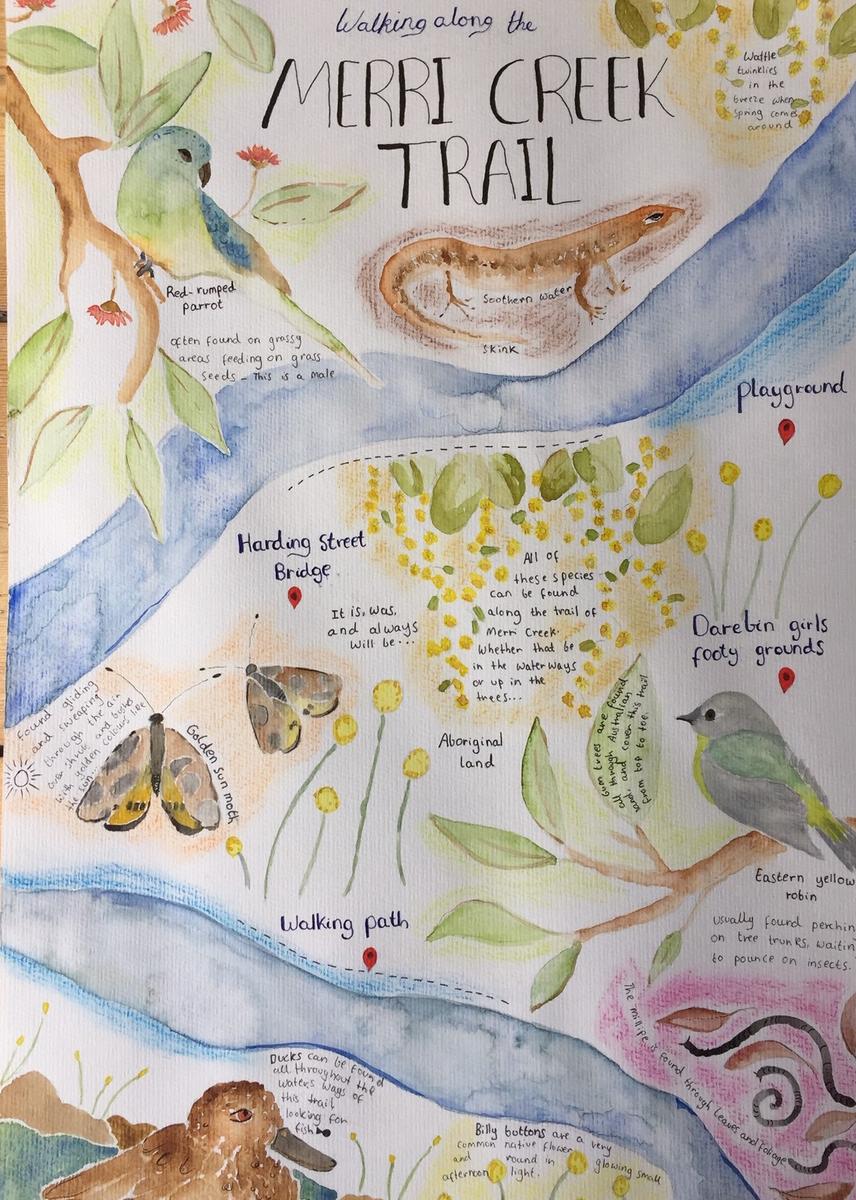 Walking along the
MERRI CREEK
TRAIL
Wattle
twinklies
in the
breeze when
spring comes
around
Red-rumped
parrot
often found on grassy
areas feeding on grass
seeds - This is a male
Soothern water
skink
Playground
Harding Street
Bridge
All of
these species
can be found
along the trail of
Merri Creek.
Whether that be
in the waterways
or up in the
trees...
It is, was,
and always
will be...
Aboriginal
land
Darebin girls
footy grounds
Found gliding
and sweeping
through the air
over shrubs and bushes
with golden colours like
the sun
Golden sun moth
Gum trees are found
all through Australian
land and cover this trail
from top to toe.
Eastern yellow
robin
usually found perchin
on tree trunks, waitin
to pounce on insects.
Walking path
The millipe is found through leaves and foliage
Ducks can be found
all throughout the
waters ways of
this trail
looking for
fish
Billy buttons are a very
common native flower
and round in glowing small
afternoon light.